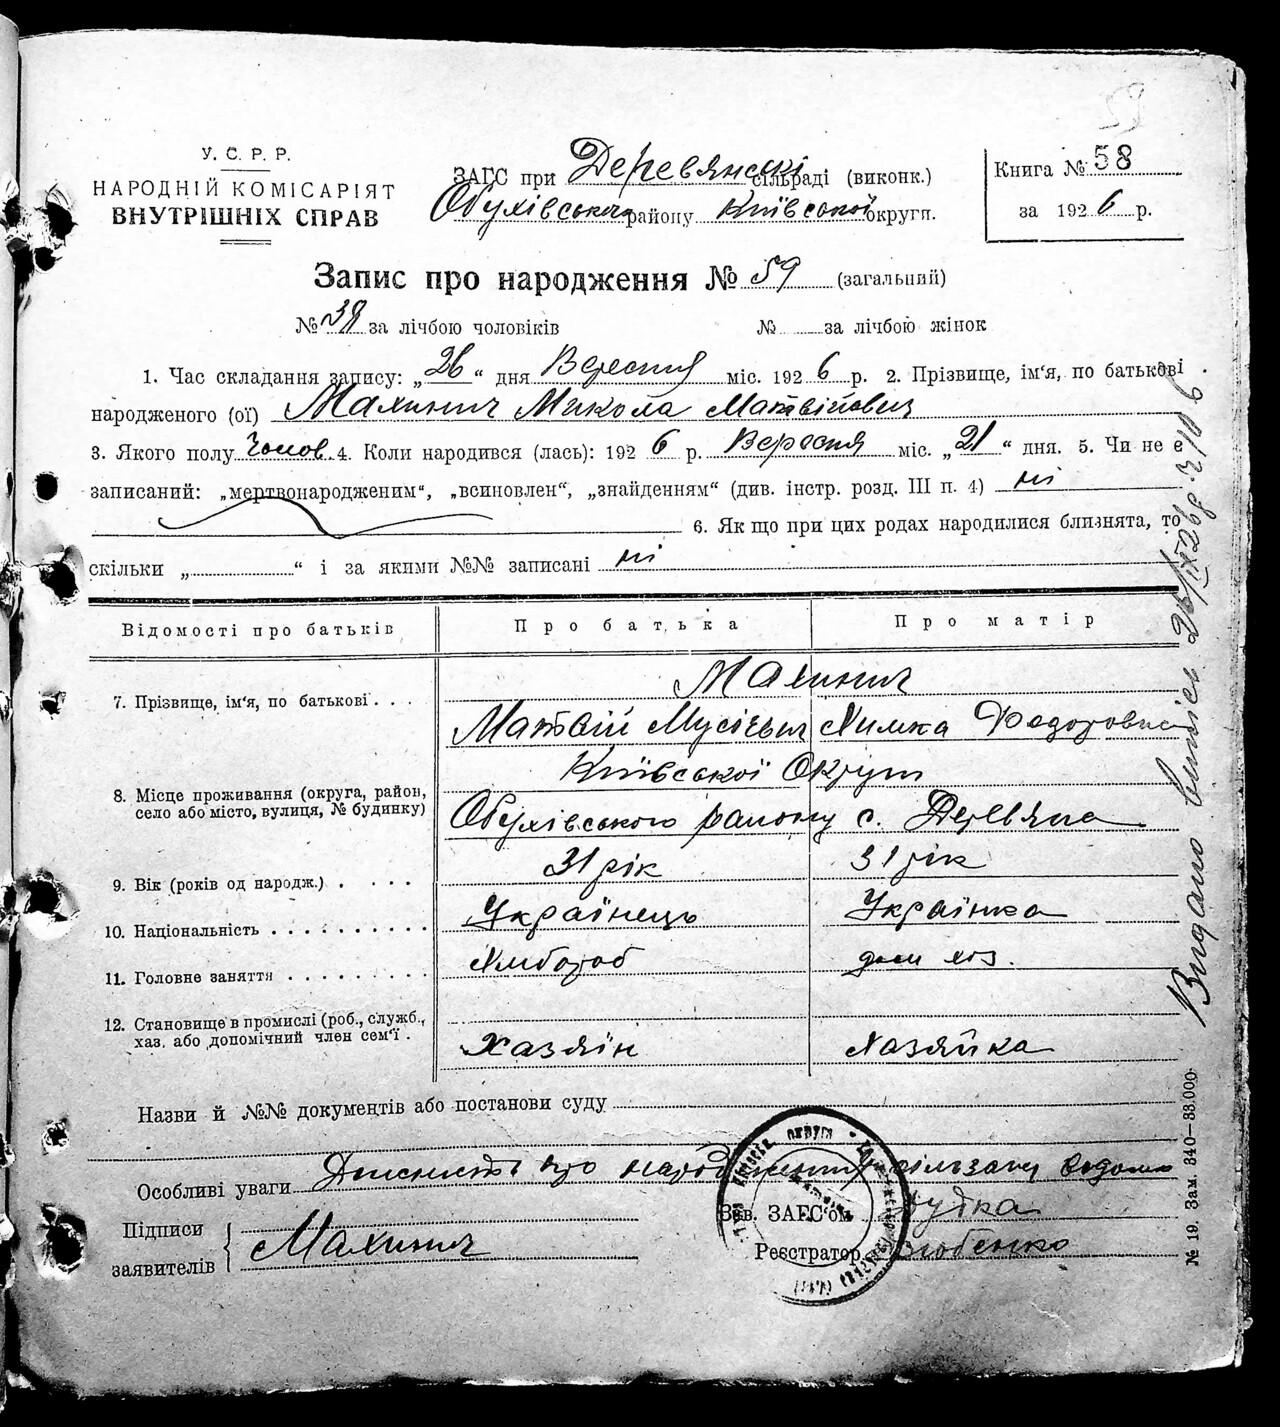 59
У. С. Р. Р.
НАРОДНІЙ КОМІСАРІЯТ
ВНУТРІШНІХ СПРАВ
ЗАГС при Деревянскі сільраді (виконк.)
Обухівського району Київської округи.
Книга № 58
за 1926 р.
Запис про народження № 59 (загальний)
№ 38 за лічбою чоловіків № за лічбою жінок
1. Час складання запису: „26“ дня Вересня міс. 1926 р. 2. Прізвище, ім'я, по батькові
народженого (ої) Махинич Микола Матвійович
3. Якого полу чолов. 4. Коли народився (лась): 1926 р. Вересня міс. „21“ дня. 5. Чи не є
записаний: „мертвонародженим“, „всиновлен“, „знайденням“ (див. інстр. розд. III п. 4) ні
6. Як що при цих родах народилися близнята, то
скільки „ “ і за якими №№ записані ні
Відомості про батьків Про батька Про матір
Махинич
7. Прізвище, ім'я, по батькові . . .
Матвій Мусієвич Химка Федоровна
Київської Округи
8. Місце проживання (округа, район,
село або місто, вулиця, № будинку)
Обухівського району с. Дерев'яна
9. Вік (років од народж.) . . . . 31 рік 31 рік
10. Національність . . . . . . . . . . Українець Українка
11. Головне заняття . . . . . . . . . Хлібороб дом хоз.
12. Становище в промислі (роб., служб.,
хаз. або допомічний член сем'ї .
Хазяїн Хазяйка
Назви й №№ документів або постанови суду
Особливі уваги про народження
Підписи
заявителів
Махинич
Зав. ЗАГС'ом
Реєстратор
Видано випись 26/IX 26
№ 19. Зам. 340—33.000